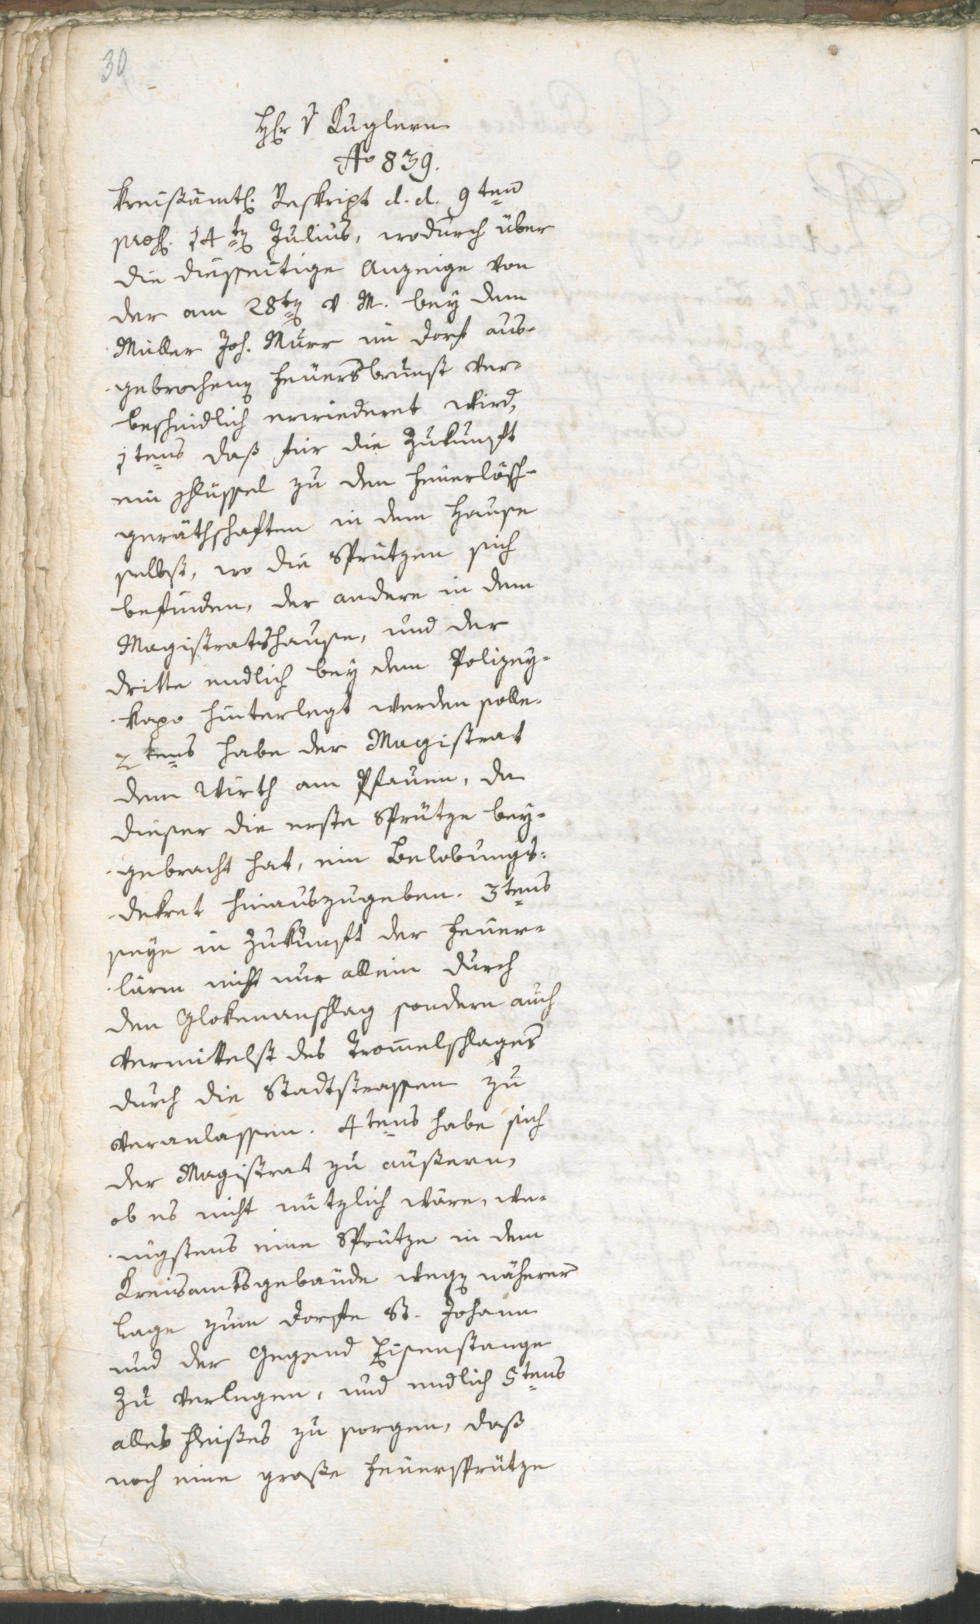 30
Hr v Kuglern
No 839.
Kreisämtl. Reskript d. d. 9ten
praes. 14tn Julius, wodurch über
die diesseitige Anzeige von
der am 28tn v. M. bey dem
Müller Joh. Murr im Dorf aus-
gebrochenen Feuersbrunst ver-
bescheidlich erwiedert wird,
1tens daß für die Zukunft
ein Schlüssel zu den Feuerlösch-
geräthschaften in dem Hause
selbst, wo die Sprützen sich
befinden, der andere in dem
Magistratshause, und der
dritte endlich bey dem Polizey-
kapo hinterlegt werden solle.
2tens habe der Magistrat
dem Wirth am Pfauen, da
dieser die erste Sprütze bey-
gebracht hat, ein Belobungs-
dekret hinauszugeben. 3tens
seye in Zukunft der Feuer-
lärm nicht nur allein durch
den Glokenanschlag sondern auch
vermittelst des Trommelschlages
durch die Stadtstrassen zu
veranlassen. 4tens habe sich
der Magistrat zu äußern,
ob es nicht nützlich wäre, we-
nigstens eine Sprütze in dem
Kreisamtsgebäude wegen näherer
Lage zum Dorffe St. Johann
und der Gegend Eisenstange
zu verlegen, und endlich 5tens
alles Fleißes zu sorgen, daß
noch eine große Feuersprütze